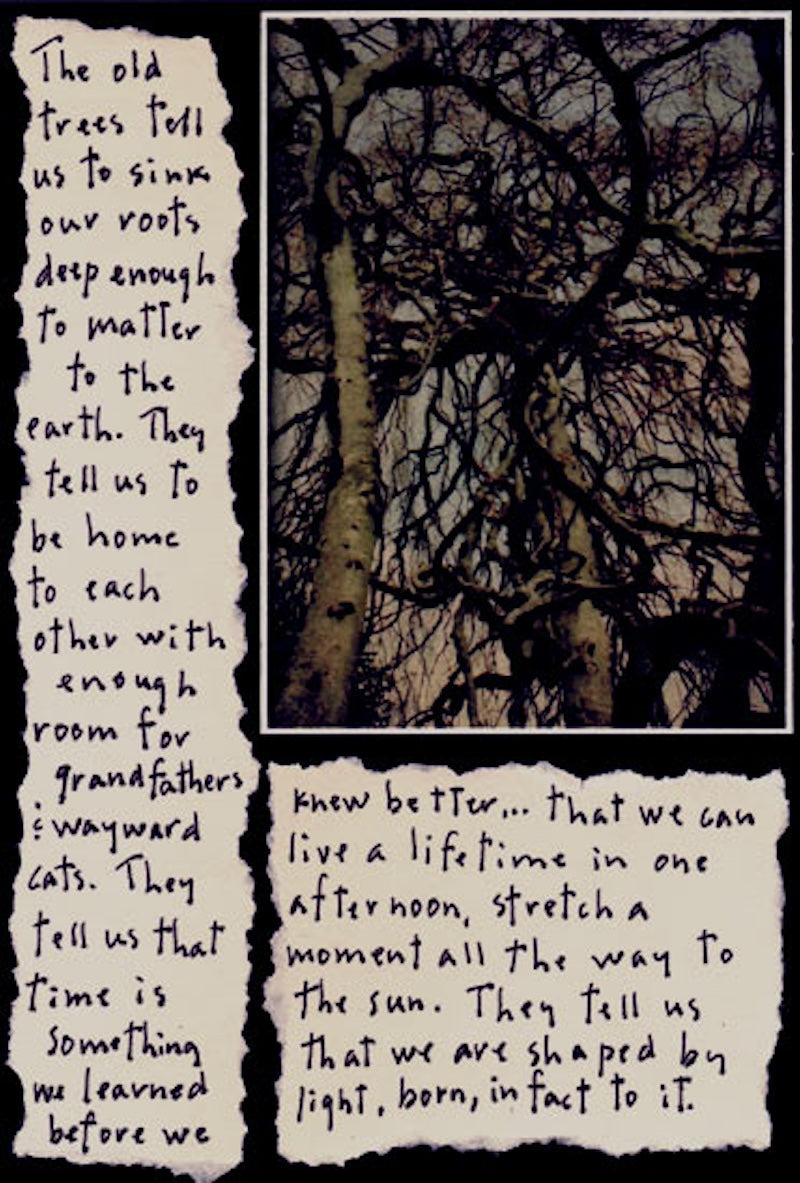 The old
trees tell
us to sink
our roots
deep enough
to matter
to the
earth. They
tell us to
be home
to each
other with
enough
room for
grandfathers
& wayward
cats. They
tell us that
time is
something
we learned
before we
knew better... that we can
live a lifetime in one
afternoon, stretch a
moment all the way to
the sun. They tell us
that we are shaped by
light, born, in fact to it.